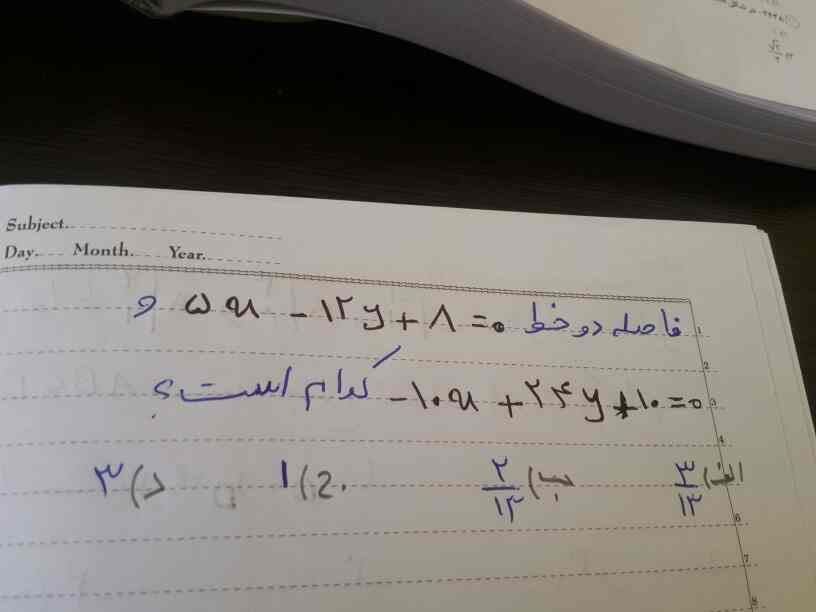 Subject.
Day. Month. Year.
فاصله دو خط ۵x - ۱۲y + ۸ = ۰ و
-۱۰x + ۲۴y + ۱۰ = ۰ کدام است؟
الف) ۳/۱۳ ب) ۲/۱۳ ج) ۱ د) ۳
1
2
3
4
6
7
8